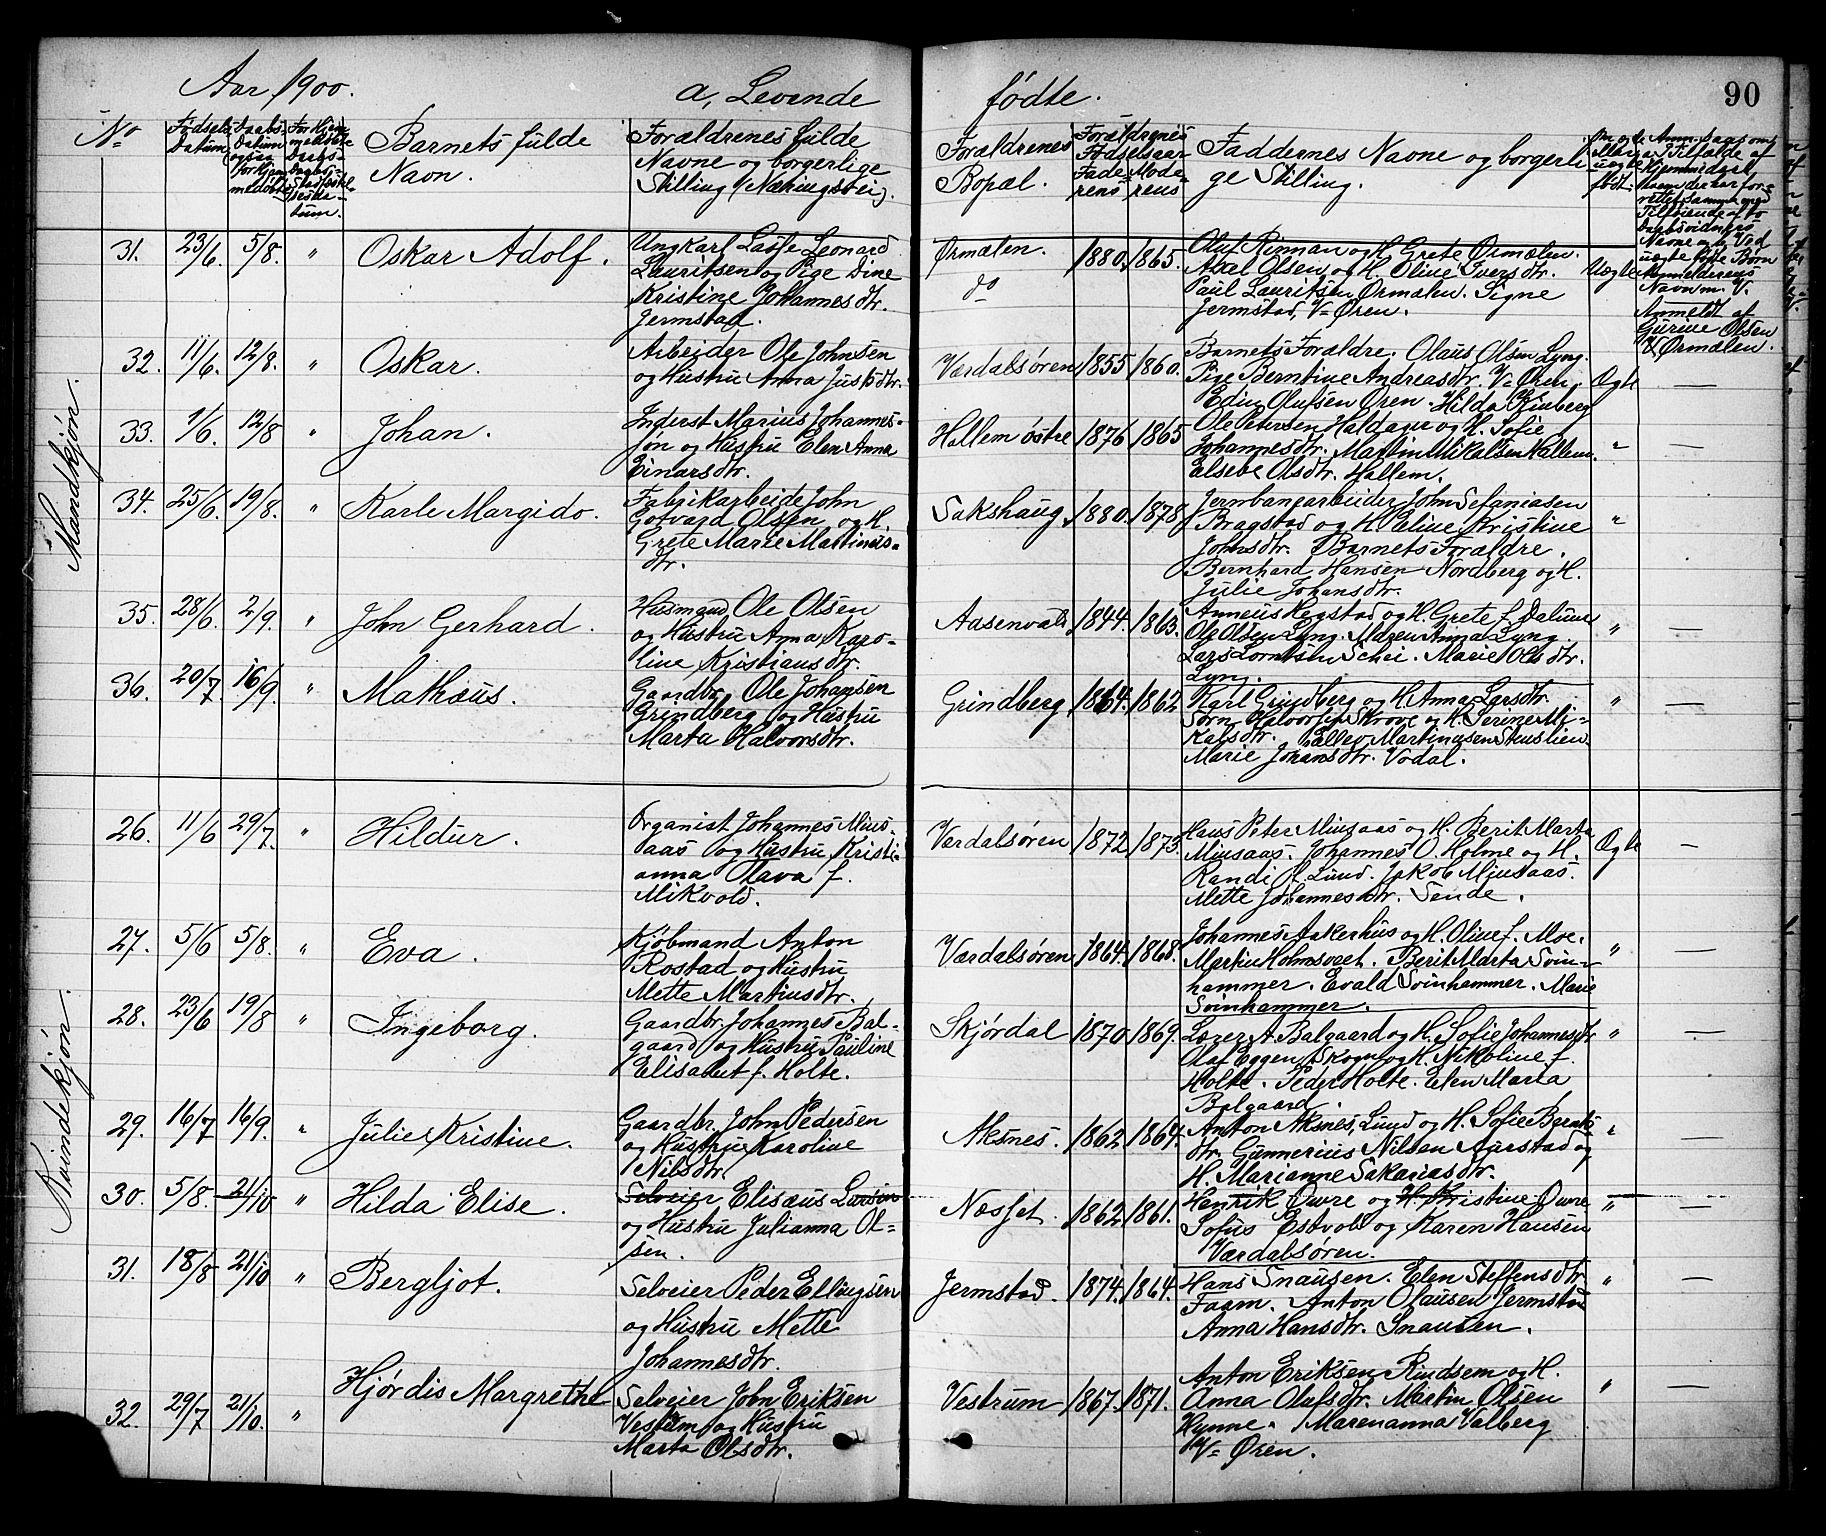 Aar 1900.
a, Levende fødte.
90
No
Fødsels Datum
Daabs-Datum
Barnets fulde Navn.
Forældrenes fulde Navne og borgerlige Stilling (Næringsvei).
Forældrenes Bopæl.
Forældrenes Fødselsaar
Faderens
Moderens
Faddernes Navne og borgerlige Stilling.
Mandkjøn.
31. 23/6. 5/8. " Oskar Adolf.
Ungkarl Lasse Leonard
Lauritsen og Pige Sine
Kristine Johannesdtr.
Jermstad.
Ørmælen. do 1880. 1865.
Oluf Rinnan og H. Grete Ørmælen.
Axel Olsen og H. Oline Iversdtr.
Paul Lauritsen Ørmælen. Signe
Jermstad, V=Øren.
Uægte
Anmeldt af
Gurine Olsen
Ørmælen.
32. 11/6. 12/8. " Oskar.
Arbeider Ole Johnsen
og Hustru Anna Justsdtr.
Værdalsøren 1855 1860.
Barnets Forældre. Olaus Olsen Lyng.
Pige Berntine Andreasdtr. V=Øren,
Edin Olufsen Øren. Hilda
Ægte —
33. 1/6. 12/8 " Johan.
Inderst Marius Johannes-
søn og Hustru Elen Anna
Einarsdtr.
Hallem østre 1876 1865
Ole Petersen Haldager og H. Sofie
Johannesdtr. Martin Mikalsen Hallem.
Elsebe Olsdtr. Hallem.
" —
34. 25/6. 19/8. " Karle Margido.
Fabrikarbeide John
Gotvard Olsen og H.
Grete Marie Martinus-
dtr.
Sakshaug. 1880. 1878
Jernbanearbeider John Sefaniasen
Bragstad og H. Eline Kristine
Johnsdtr. Barnets Forældre.
Bernhard Hansen Nordberg og H.
Julie Johansdtr.
" —
35. 28/6. 2/9. " John Gerhard.
Husmand Ole Olsen
og Hustru Anna Karo-
line Kristiansdtr.
Aasenvald 1844. 1863.
Anneus Regstad og H. Grete f. Dalum
Ole Olsen Lyng. Maren Anna Lyng.
Lars Lorntsen Schei. Marie Olsdtr.
Lyng.
" —
36. 20/7 16/9. " Mathæus.
Gaardbr. Ole Johansen
Grindberg og Hustru
Marta Halvorsdtr.
Grindberg 1864. 1862
Karl Grindberg og H. Anna Larsdtr.
Sørn Halvorsen Skrove og H. Serine Mi-
kalsdtr. Ellev Martinusen
Marie Johansdtr. Vodal.
" —
Kvindekjøn.
26. 11/6 29/7. " Hildur.
Organist Johannes Mins-
aas og Hustru Kristi-
anna Olava f.
Mikvold.
Værdalsøren 1872 1873.
Hans Peter Minsaas og H. Berit Marta
Minsaas. Johannes O. Holme og H.
Randi f. Lund. Jakob Minsaas.
Mette Johannesdtr. Sende.
Ægte —
27. 5/6 5/8. " Eva.
Kjøbmand Anton
Rostad og Hustru
Mette Martinsdtr.
Værdalsøren 1864. 1868.
Johannes Aakerhus og H. Oline f. Moe.
Martin Holmsveet. Berit Marta Svin-
hammer. Evald Svinhammer. Marie
Svinhammer.
" —
28. 23/6 19/8 " Ingeborg.
Gaardbr. Johannes Bal-
gaard og Hustru Pauline
Elisabet f. Holte.
Skjørdal 1870 1869.
Lorens A. Balgaard og H. Sofie Johannesdtr
Olaf Eggen, Skogn og H. Nikoline f.
Holte. Peder Holte. Elen Maria
Balgaard.
" —
29. 16/7 16/9. " Julie Kristine.
Gaardbr. John Pedersen
og Hustru Karoline
Nilsdtr.
Aksnes. 1862 1864.
Anton Aksnes, Lund og H. Sofie Bernts-
dtr. Gunnerius Nilsen Aurstad og
H. Marianne Sakariasdtr.
" —
30. 5/8. 21/10 " Hilda Elise.
Selveier Elisæus Larsen
og Hustru Julianna Ol-
sen.
Næsset. 1862 1861.
Henrik Øvre og H. Kristine Øvre
Sofus Estvold og Karen Hansen
Værdalsøren.
" —
31. 18/8 21/10 " Bergljot.
Selveier Peder Ellingsen
og Hustru Mette
Johannesdtr.
Jermstad. 1874. 1864.
Hans Snausen. Elen Steffensdtr.
Faarn. Anton Olausen Jermstad
Anna Hansdtr. Snausen.
" —
32. 29/7 21/10. " Hjørdis Margrethe
Selveier John Eriksen
Vestrum og Hustru
Marta Olsdtr.
Vestrum 1867. 1871.
Anton Eriksen Rindsem og H.
Anna Olufsdtr. Martin Olsen
Hynne. Marenanna Valberg
V= Øren.
" —